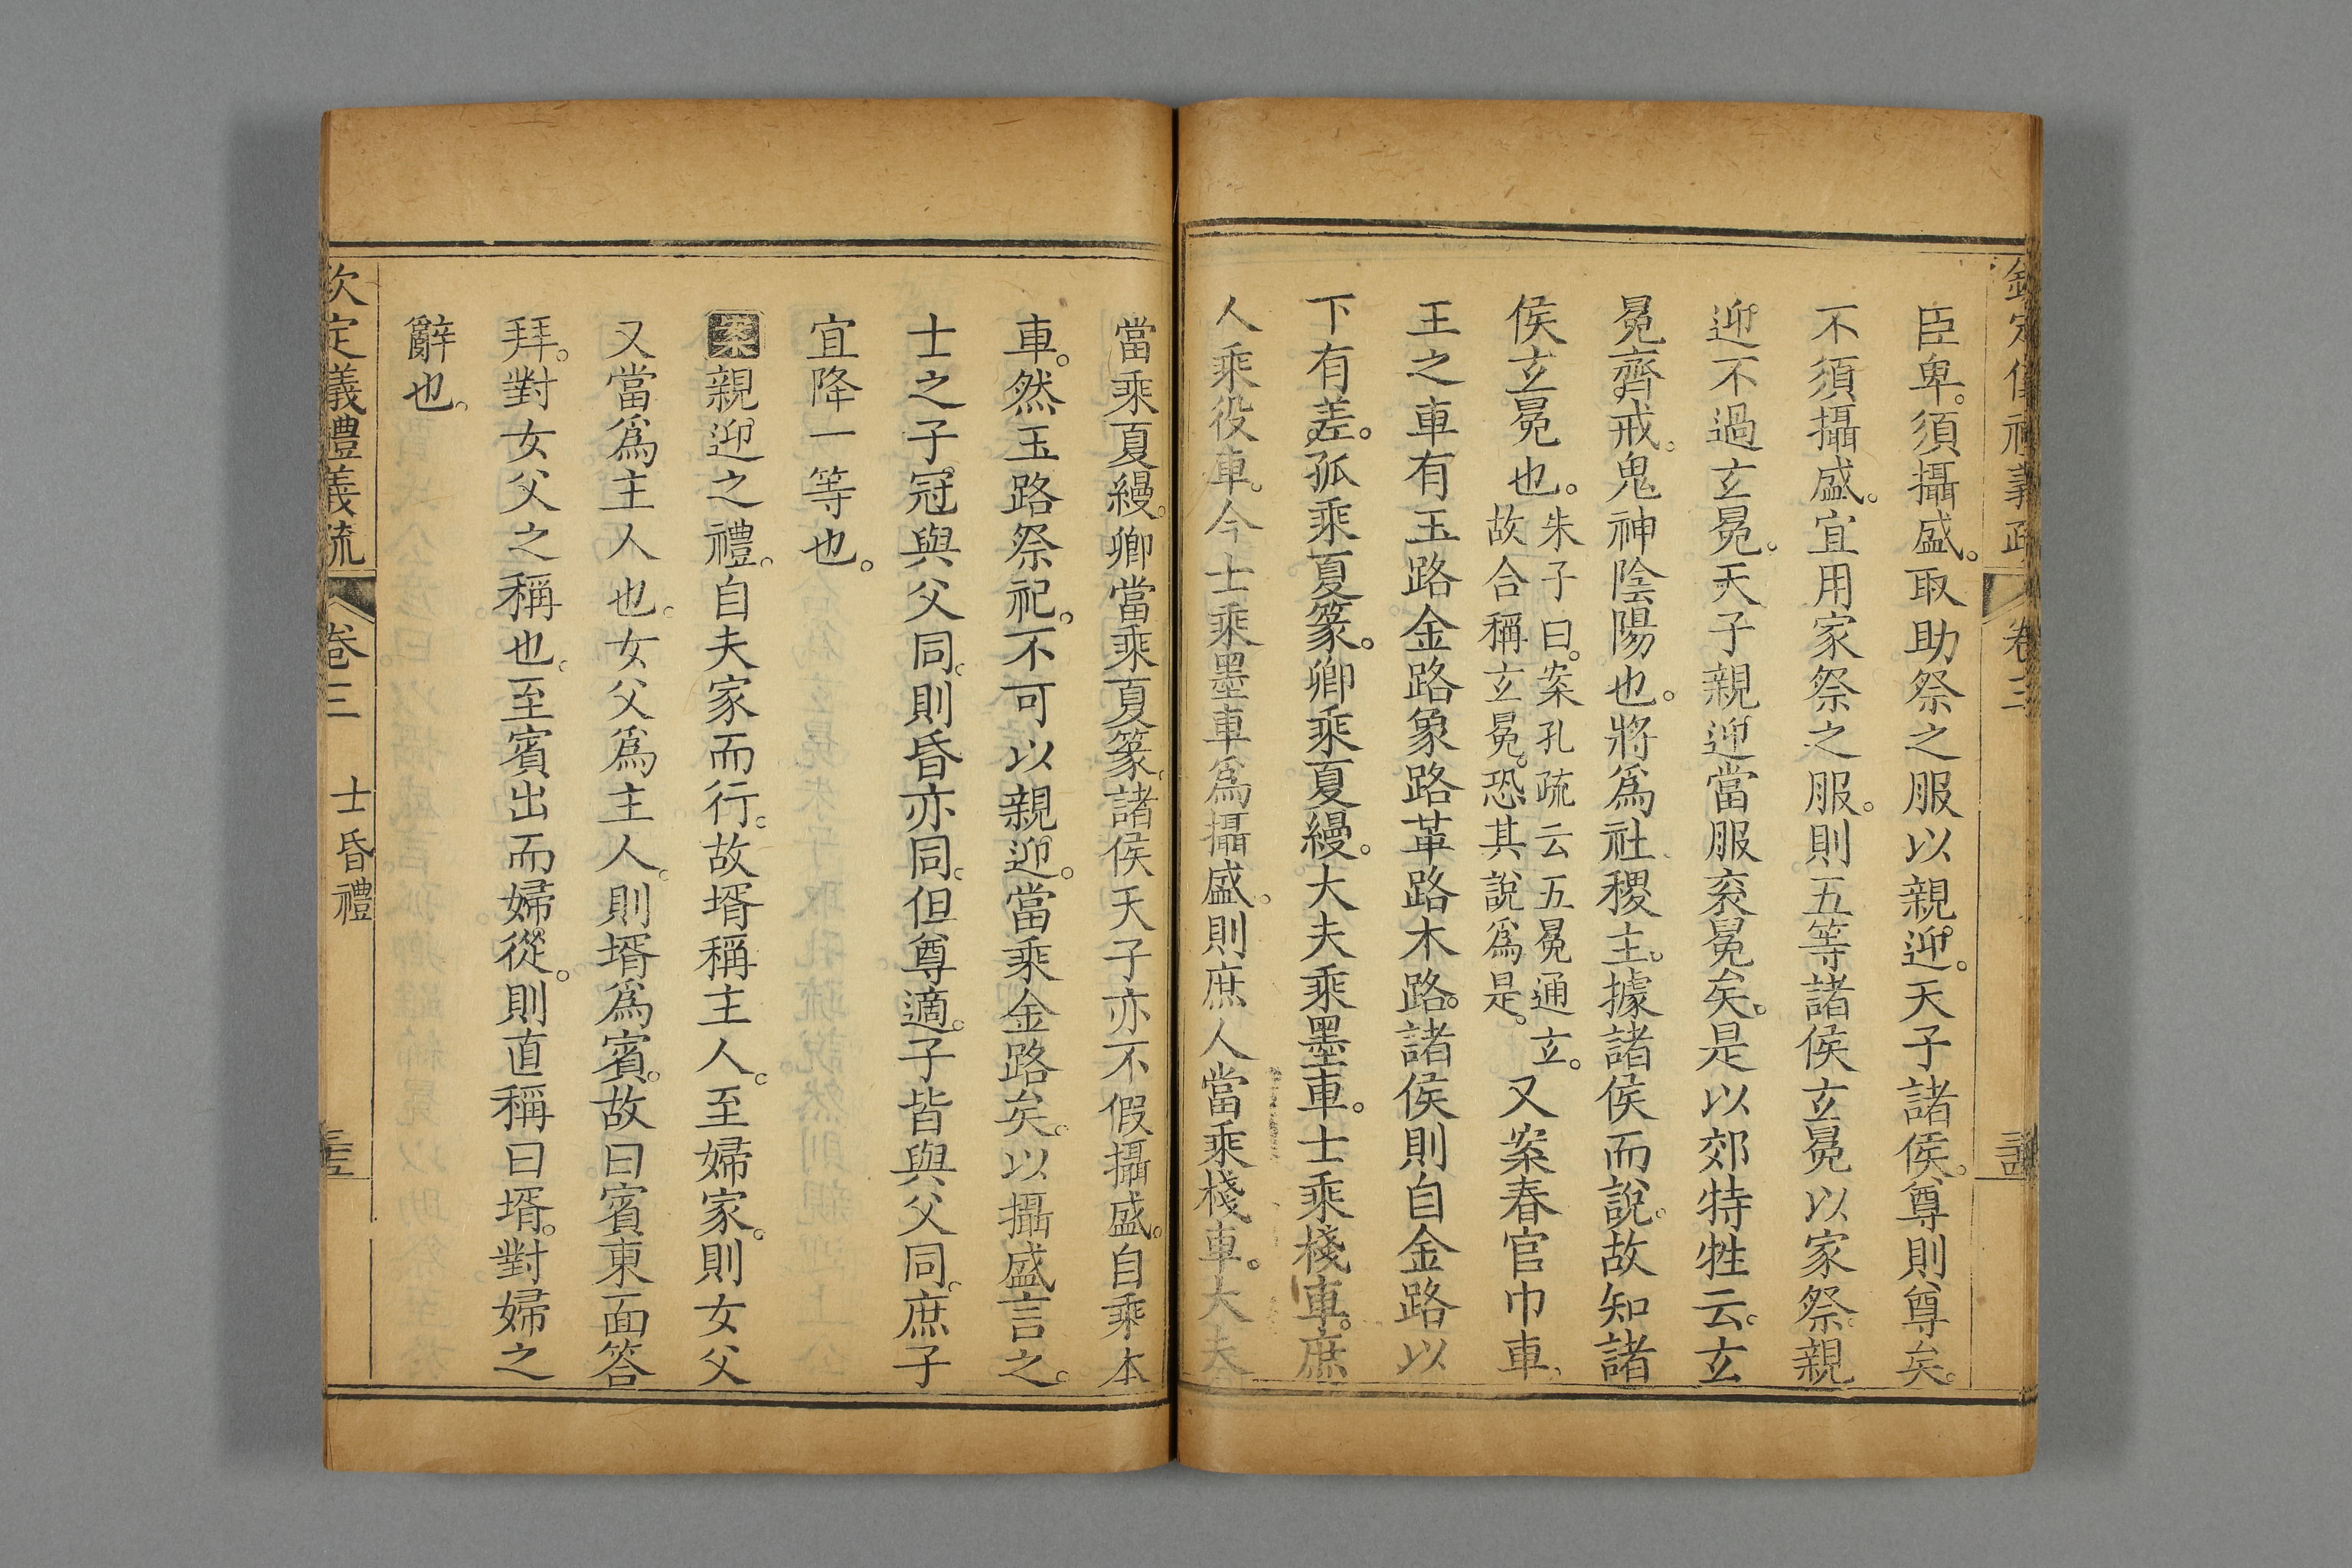 欽定儀禮義疏 卷三
臣卑。須攝盛。取助祭之服以親迎。天子諸侯。尊則尊矣。
不須攝盛。宜用家祭之服。則五等諸侯玄冕以家祭。親
迎不過玄冕。天子親迎當服衮冕矣。是以郊特牲云。玄
冕齊戒。鬼神陰陽也。將爲社稷主。據諸侯而說。故知諸
侯玄冕也。朱子曰。案孔疏云五冕通玄。故合稱玄冕。恐其說爲是。又案春官巾車、
王之車有玉路金路象路革路木路。諸侯則自金路以
下有差。孤乘夏篆。卿乘夏縵。大夫乘墨車。士乘棧車。庶
人乘役車。今士乘墨車爲攝盛。則庶人當乘棧車。大夫
當乘夏縵。卿當乘夏篆。諸侯天子亦不假攝盛。自乘本
車。然玉路祭祀。不可以親迎。當乘金路矣。以攝盛言之。
士之子冠與父同。則昏亦同。但尊適。子皆與父同。庶子
宜降一等也。
案親迎之禮。自夫家而行。故壻稱主人。至婦家。則女父
又當爲主人也。女父爲主人。則壻爲賓。故曰賓東面答
拜。對女父之稱也。至賓出而婦從。則直稱曰壻。對婦之
辭也。
欽定義禮義疏 卷三 士昏禮